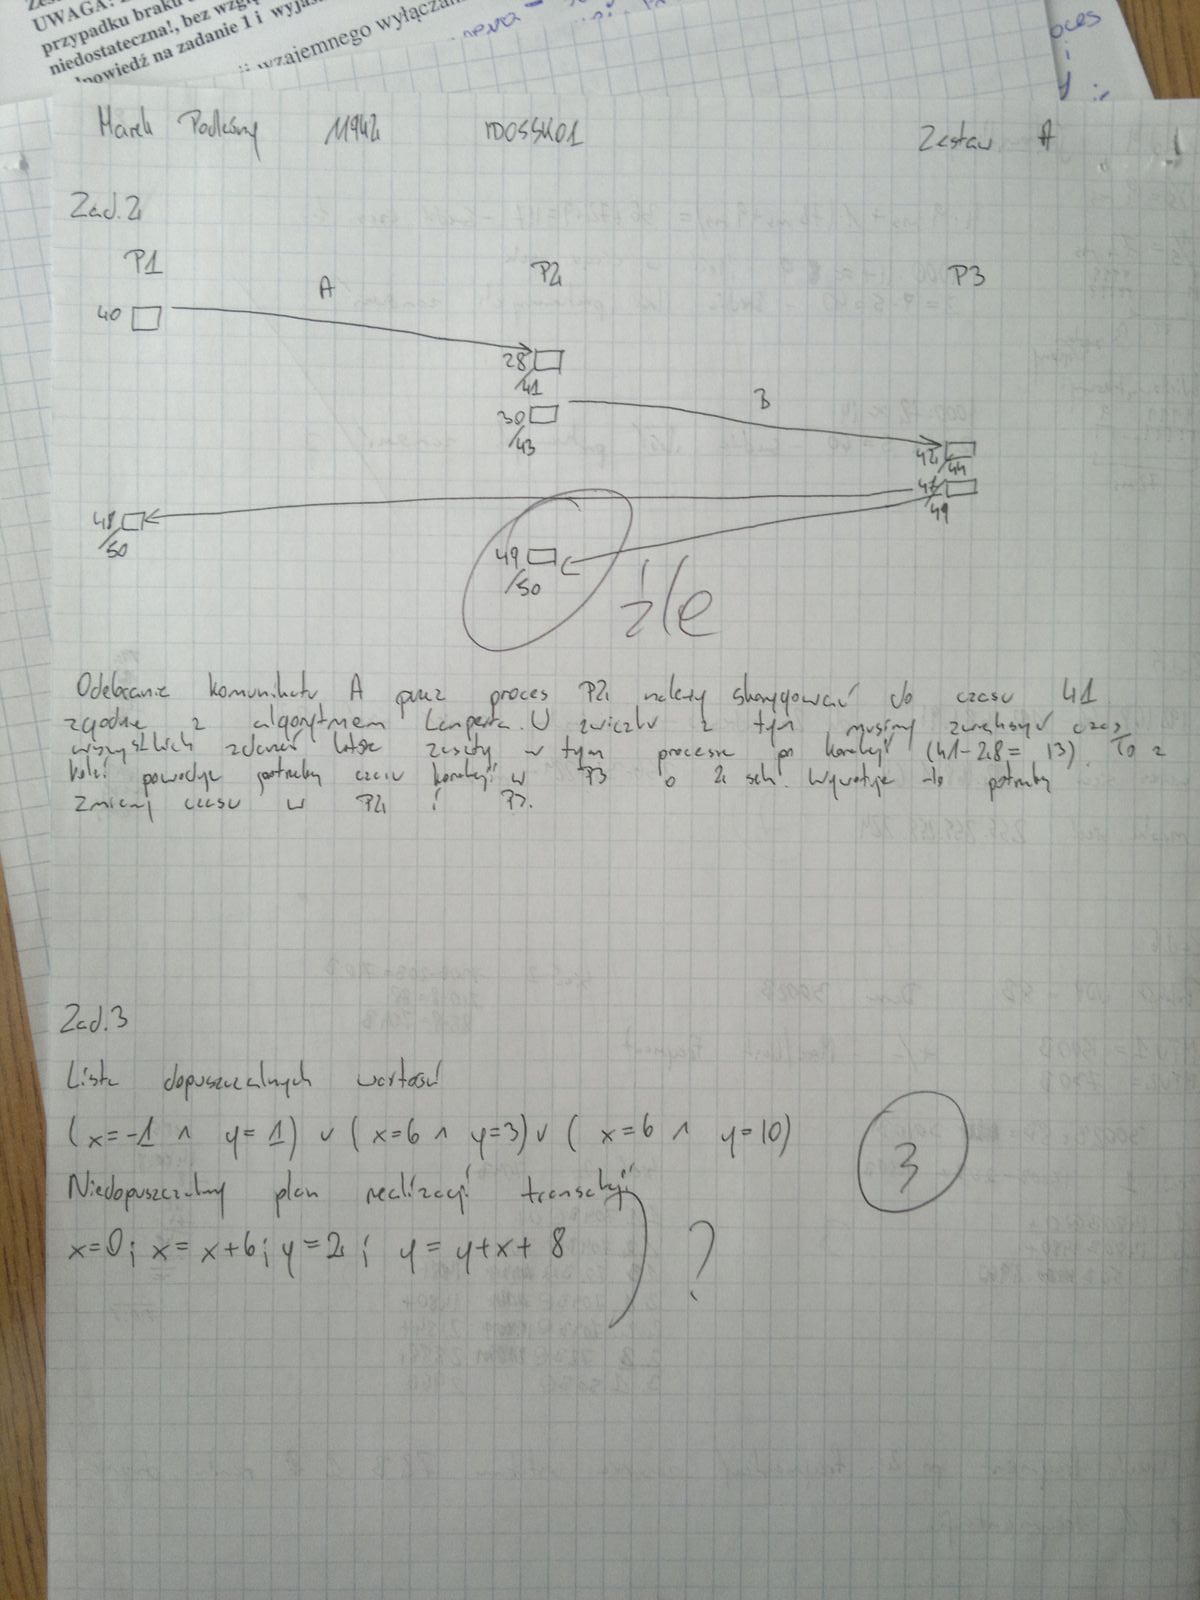 UWAGA:
przypadku braku
niedostateczna!, bez wzglę
powiedź na zadanie 1 i wyjaś
wzajemnego wyłączan
oces
Marek Podleśny 11942 Zestaw A 1
Zad.2
P1 P2 P3
A
40
28
/41
30
/43
B
42
/44
47
/49
48
/50
49
/50
źle
Odebranie komunikatu A przez proces P2 należy skorygować do czasu 41
zgodnie z algorytmem Lamporta. W związku z tym musimy zwiększyć czas
wszystkich zdarzeń które zaszły w tym procesie po korekcji (41-28= 13). To z
kolei powoduje potrzebę czasu korekcji w P3 o 2 sek. Wywołuje to potrzebę
zmiany czasu w P2 i P3.
Zad.3
Lista dopuszczalnych wartości
(x=-1 ∧ y=1) ∨ (x=6 ∧ y=3) ∨ ( x=6 ∧ y=10)
3
Niedopuszczalny plan realizacji transakcji
x=0; x= x+6; y=2; y= y+x+ 8
?